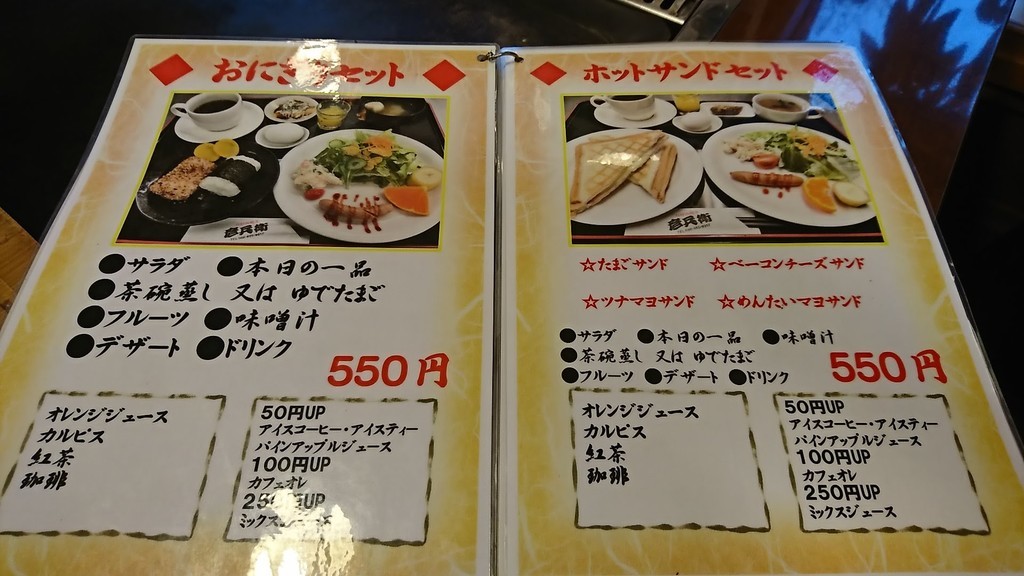 おにぎりセット
彦兵衛
●サラダ ●本日の一品
●茶碗蒸し 又は ゆでたまご
●フルーツ ●味噌汁
●デザート ●ドリンク
550円
オレンジジュース
カルピス
紅茶
珈琲
50円UP
アイスコーヒー・アイスティー
パインアップルジュース
100円UP
カフェオレ
250円UP
ミックスジュース
ホットサンドセット
彦兵衛
☆たまごサンド ☆ベーコンチーズサンド
☆ツナマヨサンド ☆めんたいマヨサンド
●サラダ ●本日の一品 ●味噌汁
●茶碗蒸し 又は ゆでたまご
●フルーツ ●デザート ●ドリンク
550円
オレンジジュース
カルピス
紅茶
珈琲
50円UP
アイスコーヒー・アイスティー
パインアップルジュース
100円UP
カフェオレ
250円UP
ミックスジュース